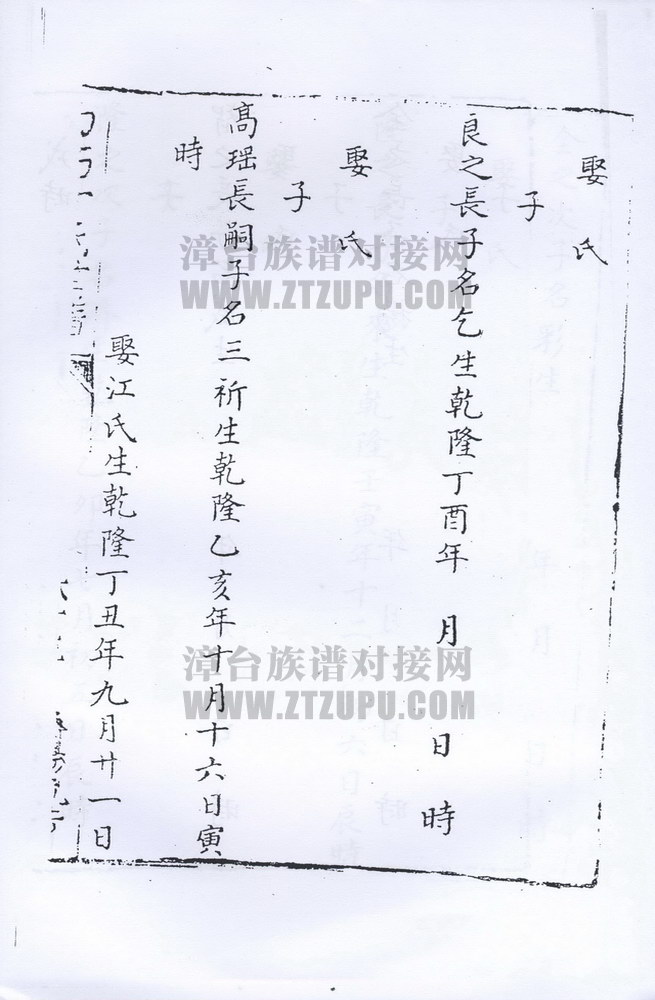 娶　氏
子
良之長子名乞生乾隆丁酉年　月　日　時
娶　氏
子
高瑶長嗣子名三祈生乾隆乙亥年十月十六日寅
時
娶江氏生乾隆丁丑年九月廿一日
漳台族谱对接网
WWW.ZTZUPU.COM
漳台族谱对接网
WWW.ZTZUPU.COM